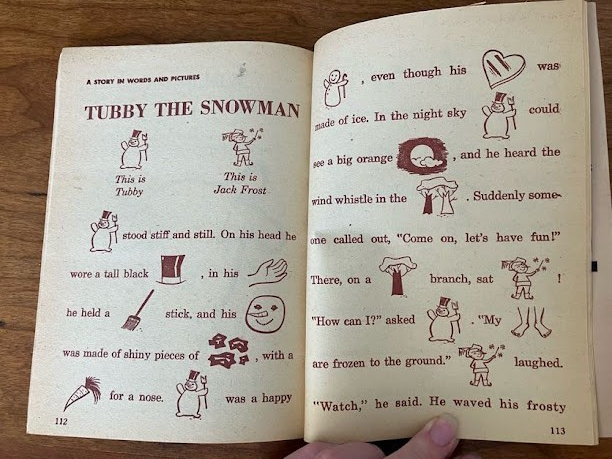 A STORY IN WORDS AND PICTURES
TUBBY THE SNOWMAN
This is
Tubby
This is
Jack Frost
stood stiff and still. On his head he
wore a tall black , in his
he held a stick, and his
was made of shiny pieces of , with a
for a nose. was a happy
112
, even though his was
made of ice. In the night sky could
see a big orange , and he heard the
wind whistle in the . Suddenly some-
one called out, "Come on, let's have fun!"
There, on a branch, sat !
"How can I?" asked . "My
are frozen to the ground." laughed.
"Watch," he said. He waved his frosty
113